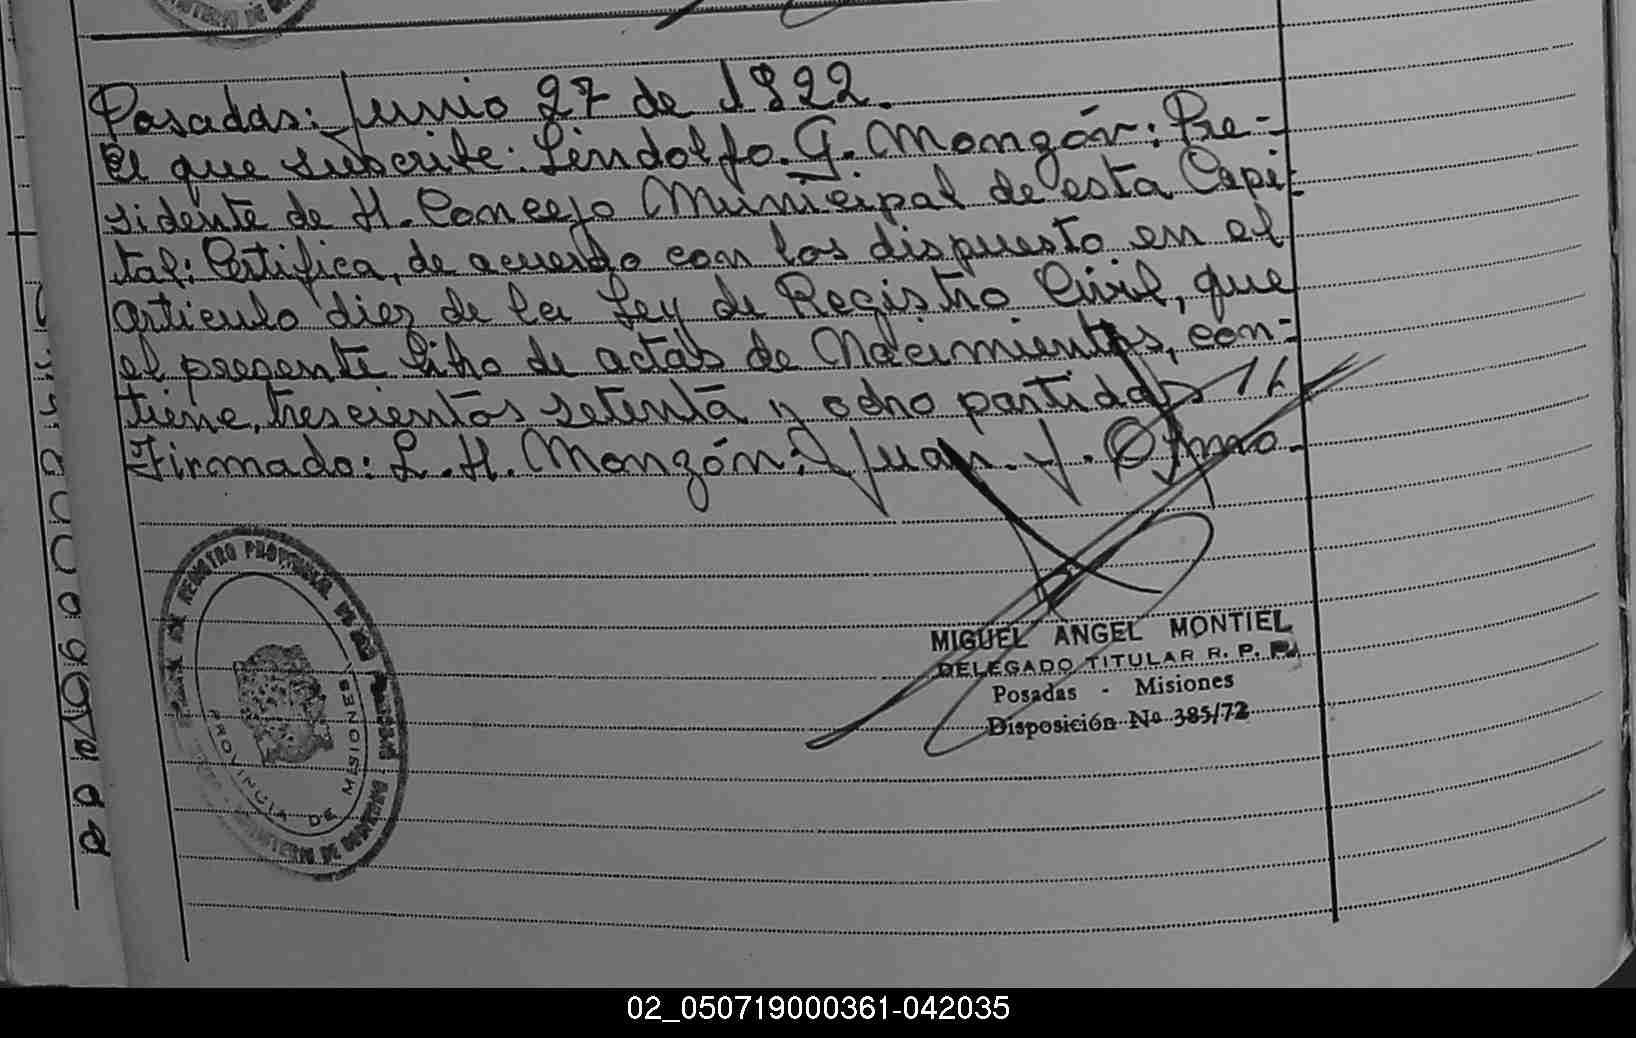 Posadas: Junio 27 de 1922.
El que suscribe: Lindolfo. G. Monzón: Pre-
sidente de H. Concejo Municipal de esta Capi-
tal: Certifica, de acuerdo con los dispuesto en el
articulo diez de la Ley de Registro Civil, que
el presente libro de actas de Nacimientos, con-
tiene, trescientos setenta y ocho partidas
Firmado: L. H. Monzón: Juan. J.
REGISTRO PROVINCIAL DE LAS PERSONAS
PROVINCIA DE MISIONES
MINISTERIO DE GOBIERNO
MIGUEL ANGEL MONTIEL
DELEGADO TITULAR R. P. P.
Posadas - Misiones
Disposición Nº 385/72
02_050719000361-042035